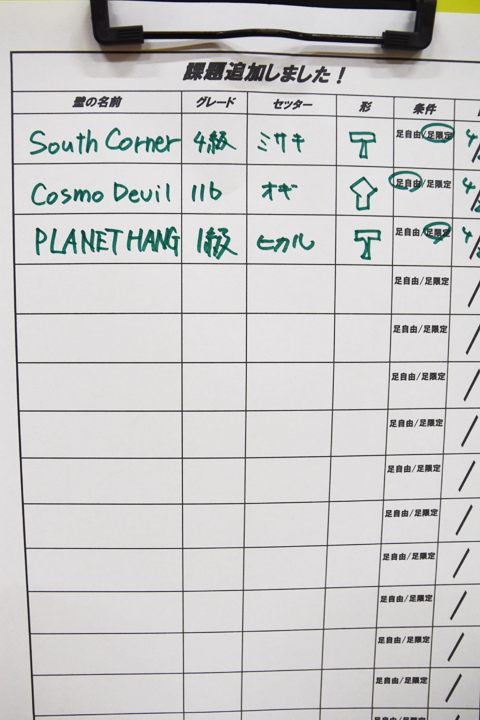 課題追加しました!
壁の名前 グレード セッター 形 条件
South Corner 4級 ミサキ 足自由/足限定 4/
Cosmo Devil 11b オギ 足自由/足限定 4/
PLANET HANG 1級 ヒカル 足自由/足限定 4/
足自由/足限定 /
足自由/足限定 /
足自由/足限定 /
足自由/足限定 /
足自由/足限定 /
足自由/足限定 /
足自由/足限定 /
足自由/足限定 /
足自由/足限定 /
足自由/足限定 /